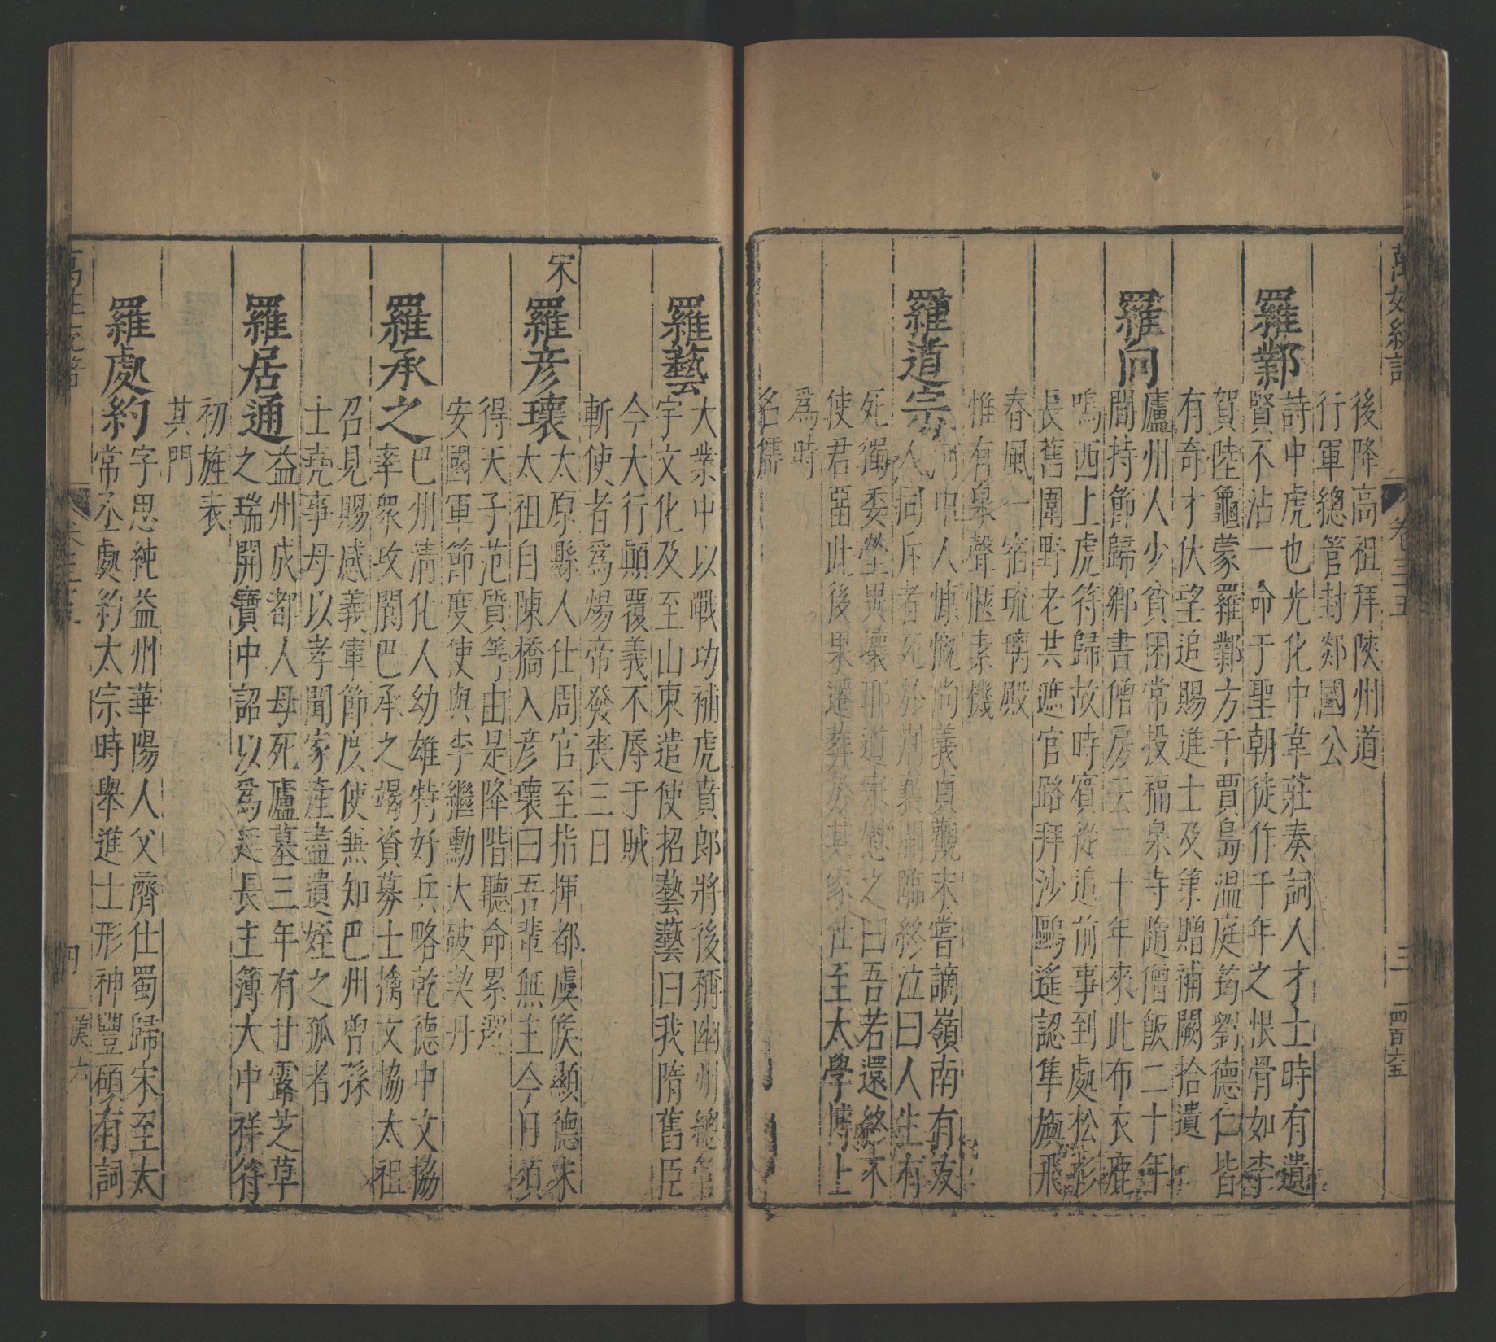 萬姓統譜 卷三十五 三 四百六五
後降高祖拜陝州道
行軍總管封郯國公
羅鄴 詩中虎也光化中韋莊奏詞人才士時有遺
賢不沾一命于聖朝徒作千年之恨骨如李
賀陸龜蒙羅鄴方干賈島溫庭筠劉德仁皆
有奇才伏望追賜進士及第贈補闕拾遺
羅向 廬州人少貧困常投福泉寺隨僧飯二十年
間持節歸鄉書僧房云二十年來此布衣鹿
鳴西上虎符歸故時賓從追前事到處松杉
長舊圍野老共遮官路拜沙鷗遙認隼旟飛
春風一宿琉璃殿
惟有泉聲愜素機
羅道宗 中人慷慨尚義貞觀末嘗謫嶺南有友
人同斥者死於荊襄間臨終泣曰人生有
死獨委塋異壤耶道宗慰之曰吾若還終不
使君畱此後果還葬其家仕至太學博士
爲時
名儒
羅藝 大業中以戰功補虎賁郎將後稱幽州總管
宇文化及至山東遣使招藝藝曰我隋舊臣
今大行顛覆義不辱于賊
斬使者爲煬帝發喪三日
宋
羅彥瓌 太原縣人仕周官至指揮都虞候顯德末
太祖自陳橋入彥瓌曰吾輩無主今日須
得天子范質等由是降階聽命累遷
安國軍節度使與李繼勳大破契丹
羅承之 巴州清化人幼雄特好兵略乾德中文協
率眾攻閬巴承之竭資募士擒文協太祖
召見賜感義軍節度使無知巴州曾孫
士堯事母以孝聞家產盡遺姪之孤者
羅居通 益州成都人母死廬墓三年有甘露芝草
之瑞開寶中詔以爲延長主簿大中祥符
初旌表
其門
羅處約 字思純益州華陽人父濟仕蜀歸宋至太
常丞處約太宗時舉進士形神豐碩有詞
萬姓統譜 卷三十五 四 漢六